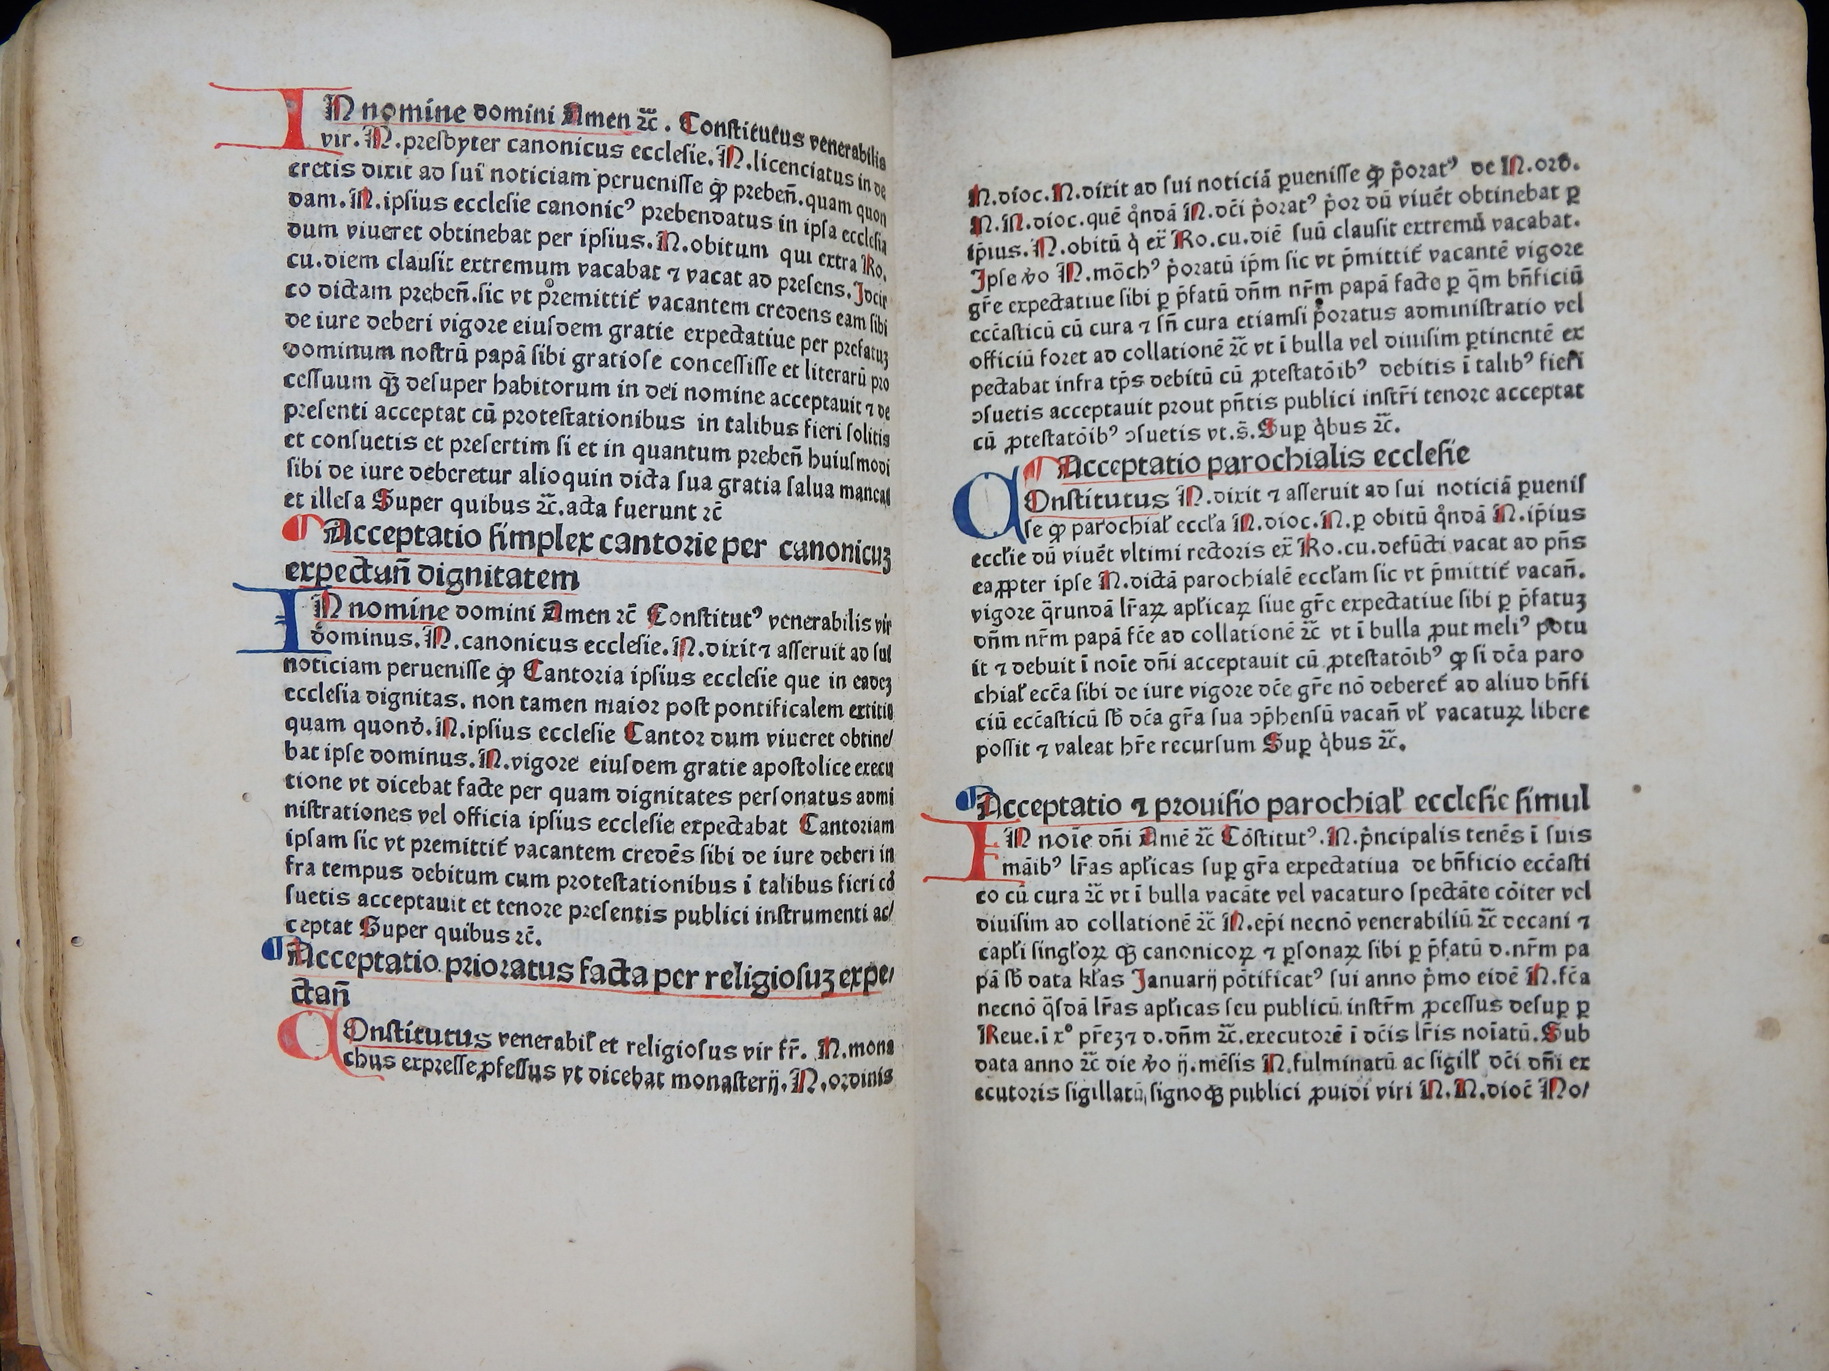 IN nomine domini Amen ⁊c̄. Constitutus venerabilis
vir. N. presbyter canonicus ecclesie. N. licenciatus in de
cretis dixit ad sui noticiam peruenisse ꝙ prebeñ. quam quon
dam. N. ipsius ecclesie canonicꝰ prebendatus in ipsa ecclesia
dum viueret obtinebat per ipsius. N. obitum qui extra Ro.
cu. diem clausit extremum vacabat ⁊ vacat ad presens. Idcir
co dictam prebeñ. sic vt premittit᷑ vacantem credens eam sibi
de iure deberi vigore eiusdem gratie expectatiue per prefatuꝫ
dominum nostrū papā sibi gratiose concessisse et literarū pro
cessuum qꝫ desuper habitorum in dei nomine acceptauit ⁊ de
presenti acceptat cū protestationibus in talibus fieri solitis
et consuetis et presertim si et in quantum prebeñ huiusmodi
sibi de iure deberetur alioquin dicta sua gratia salua maneat
et illesa Super quibus ⁊c̄. acta fuerunt ⁊c̄
¶ Acceptatio simplex cantorie per canonicuꝫ
expectañ dignitatem
IN nomine domini Amen ⁊c̄ Constitutꝰ venerabilis vir
dominus. N. canonicus ecclesie. N. dixit ⁊ asseruit ad sui
noticiam peruenisse ꝙ Cantoria ipsius ecclesie que in eadeꝫ
ecclesia dignitas. non tamen maior post pontificalem extitit
quam quond̄. N. ipsius ecclesie Cantor dum viueret obtine/
bat ipse dominus. N. vigore eiusdem gratie apostolice execu
tione vt dicebat facte per quam dignitates personatus admi
nistrationes vel officia ipsius ecclesie expectabat Cantoriam
ipsam sic vt premittit᷑ vacantem credēs sibi de iure deberi in
fra tempus debitum cum protestationibus ī talibus fieri cō
suetis acceptauit et tenore presentis publici instrumenti ac/
ceptat Super quibus ⁊c̄.
¶ Acceptatio prioratus facta per religiosuꝫ expe/
ctañ
COnstitutus venerabil̄ et religiosus vir fr̄. N. mona
chus expresse ꝓfessus vt dicebat monasterij. N. ordinis
N. dioc. N. dixit ad sui noticiā ꝑuenisse ꝙ p̄oratꝰ de N. ord̄.
N. N. dioc. quē q̄ndā N. dc̄i p̄oratꝰ p̄or dū viuēt obtinebat ꝑ
ip̄ius. N. obitū q̇ ex̄ Ro. cu. diē suū clausit extremū vacabat.
Ipse v̄o N. mōchꝰ p̄oratū ip̄m sic vt p̄mittit᷑ vacantē vigore
gr̄e expectatiue sibi ꝑ p̄fatū dn̄m nr̄m papā facte ꝑ q̄m bn̄ficiū
ecc̄asticū cū cura ⁊ sn̄ cura etiamsi p̄oratus administratio vel
officiū foret ad collationē ⁊c̄ vt ī bulla vel diuisim ꝑtinentē ex
pectabat infra tp̄s debitū cū ꝓtestatōibꝰ debitis ī talibꝰ fieri
ↄsuetis acceptauit prout pn̄tis publici instr̄i tenore acceptat
cū ꝓtestatōibꝰ ↄsuetis vt. s̄. Suꝑ q̇bus ⁊c̄.
¶ Acceptatio parochialis ecclesie
COnstitutus N. dixit ⁊ asseruit ad sui noticiā ꝑuenis
se ꝙ parochial̄ eccl̄a N. dioc. N. ꝑ obitū q̄ndā N. ip̄ius
eccl̄ie dū viuēt vltimi rectoris ex̄ Ro. cu. defūcti vacat ad pn̄s
eaꝓpter ipse N. dictā parochialē eccl̄am sic vt p̄mittit᷑ vacañ.
vigore q̄rundā lr̄aꝝ apl̄icaꝝ siue gr̄e expectatiue sibi ꝑ p̄fatuꝫ
dn̄m nr̄m papā fc̄e ad collationē ⁊c̄ vt ī bulla ꝓut meliꝰ potu
it ⁊ debuit ī noīe dn̄i acceptauit cū ꝓtestatōibꝰ ꝙ si dc̄a paro
chial̄ ecc̄a sibi de iure vigore dc̄e gr̄e nō deberet᷑ ad aliud bn̄fi
ciū ecc̄asticū sb̄ dc̄a gr̄a sua ↄp̄hensū vacañ vl̄ vacatuꝝ libere
possit ⁊ valeat hr̄e recursum Suꝑ q̇bus ⁊c̄.
¶ Acceptatio ⁊ prouisio parochial̄ ecclesie simul
IN noīe dn̄i Amē ⁊c̄ Cōstitutꝰ. N. p̄ncipalis tenēs ī suis
māibꝰ lr̄as apl̄icas suꝑ gr̄a expectatiua de bn̄ficio ecc̄asti
co cū cura ⁊c̄ vt ī bulla vacāte vel vacaturo spectāte cōiter vel
diuisim ad collationē ⁊c̄ N. ep̄i necnō venerabiliū ⁊c̄ decani ⁊
capl̄i singl̄oꝝ qꝫ canonicoꝝ ⁊ ꝑsonaꝝ sibi ꝑ p̄fatū d. nr̄m pa
pā sb̄ data kl̄as Januarij pōtificatꝰ sui anno p̄mo eidē N. fc̄a
necnō q̄sdā lr̄as apl̄icas seu publicū instr̄m ꝓcessus desuꝑ ꝑ
Reue. i xº pr̄eꝫ ⁊ d. dn̄m ⁊c̄. executorē ī dc̄is lr̄is noīatū. Sub
data anno ⁊c̄ die v̄o ij. mēsis N. fulminatū ac sigill̄ dc̄i dn̄i ex
ecutoris sigillatū, signoqꝫ publici ꝓuidi viri N. N. dioc̄ No/